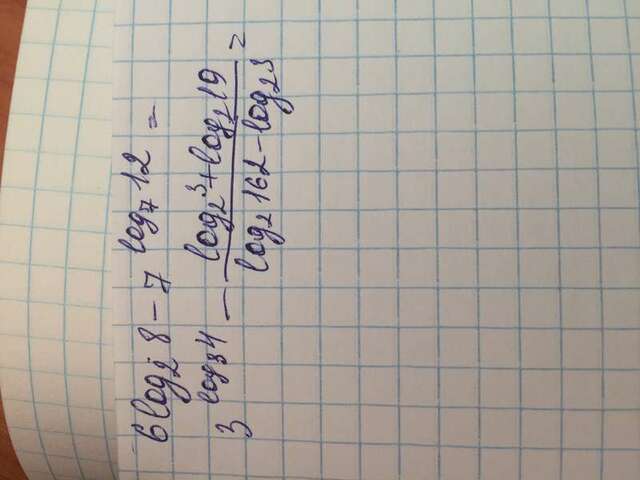 6log₂8 - 7^log₇12 =
3^log₃4 - (log₂3 + log₂19)/(log₂162 - log₂3) =